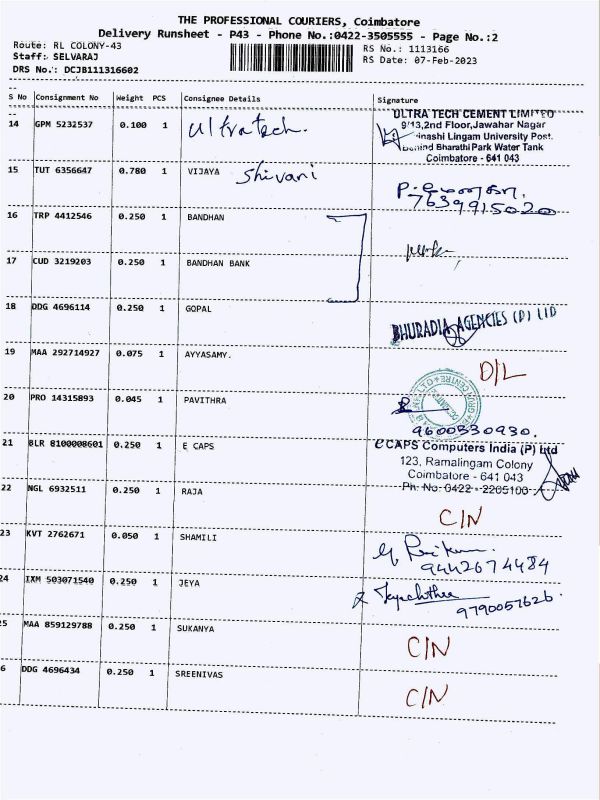 THE PROFESSIONAL COURIERS, Coimbatore
Delivery Runsheet - P43 - Phone No.:0422-3505555 - Page No.:2
Route: RL COLONY-43 RS No.: 1113166
Staff: SELVARAJ RS Date: 07-Feb-2023
DRS No.: DCJB111316602
S No Consignment No Weight PCS Consignee Details Signature
14 GPM 5232537 0.100 1 Ultratech. ULTRA TECH CEMENT LIMITED
9/13,2nd Floor,Jawahar Nagar
inashi Lingam University Post.
Behind Bharathi Park Water Tank
Coimbatore - 641 043
15 TUT 6356647 0.780 1 VIJAYA Shivani
7639915020
16 TRP 4412546 0.250 1 BANDHAN
17 CUD 3219203 0.250 1 BANDHAN BANK
18 DDG 4696114 0.250 1 GOPAL BHURADIA AGENCIES (P) LTD
19 MAA 292714927 0.075 1 AYYASAMY. D/L
20 PRO 14315893 0.045 1 PAVITHRA
9600330930.
21 BLR 8100008601 0.250 1 E CAPS eCAPS Computers India (P) Ltd
123, Ramalingam Colony
Coimbatore - 641 043
Ph: No: 0422 - 2205100
22 NGL 6932511 0.250 1 RAJA C/N
23 KVT 2762671 0.050 1 SHAMILI
9442674484
24 IXM 503071540 0.250 1 JEYA
9790057626.
25 MAA 859129788 0.250 1 SUKANYA C/N
6 DDG 4696434 0.250 1 SREENIVAS C/N